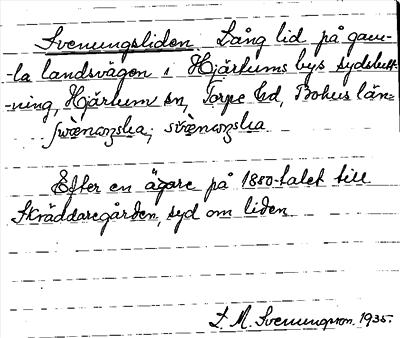 Sveningsliden. Lång lid på gam-
-la landsvägen i Hjärtums bys sydslutt-
-ning, Hjärtum sn, Torpe hd, Bohus län.
Efter en ägare på 1880-talet till
Skräddaregården, syd om liden.
L. M. Svenungsson. 1935.